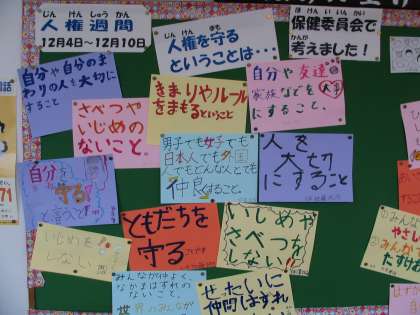 じんけんしゅうかん
人権週間
12月4日～12月10日
じんけん まも
人権を守る
ということは・・・
ほけんいいんかい
保健委員会で
かんが
考えました！
自分や自分のま
わりの人を大切に
すること
さべつや
いじめの
ないこと。
きまりやルール
をまもるということ
自分や友達
家族などを大事
にすること。
男子でも女子でも
日本人でも外国
人でもどんな人とでも
仲良くすること。
人を
大切
にすること
自分を
守る
ともだちを
守る
いじめや
さべつを
しない!!
いじめを
しない
みんなが仲よく、
なかまはずれの
ないこと。
世界のみんなが
ぜったいに
仲間はずれ
のみんな
やさし
みんな
たすけ